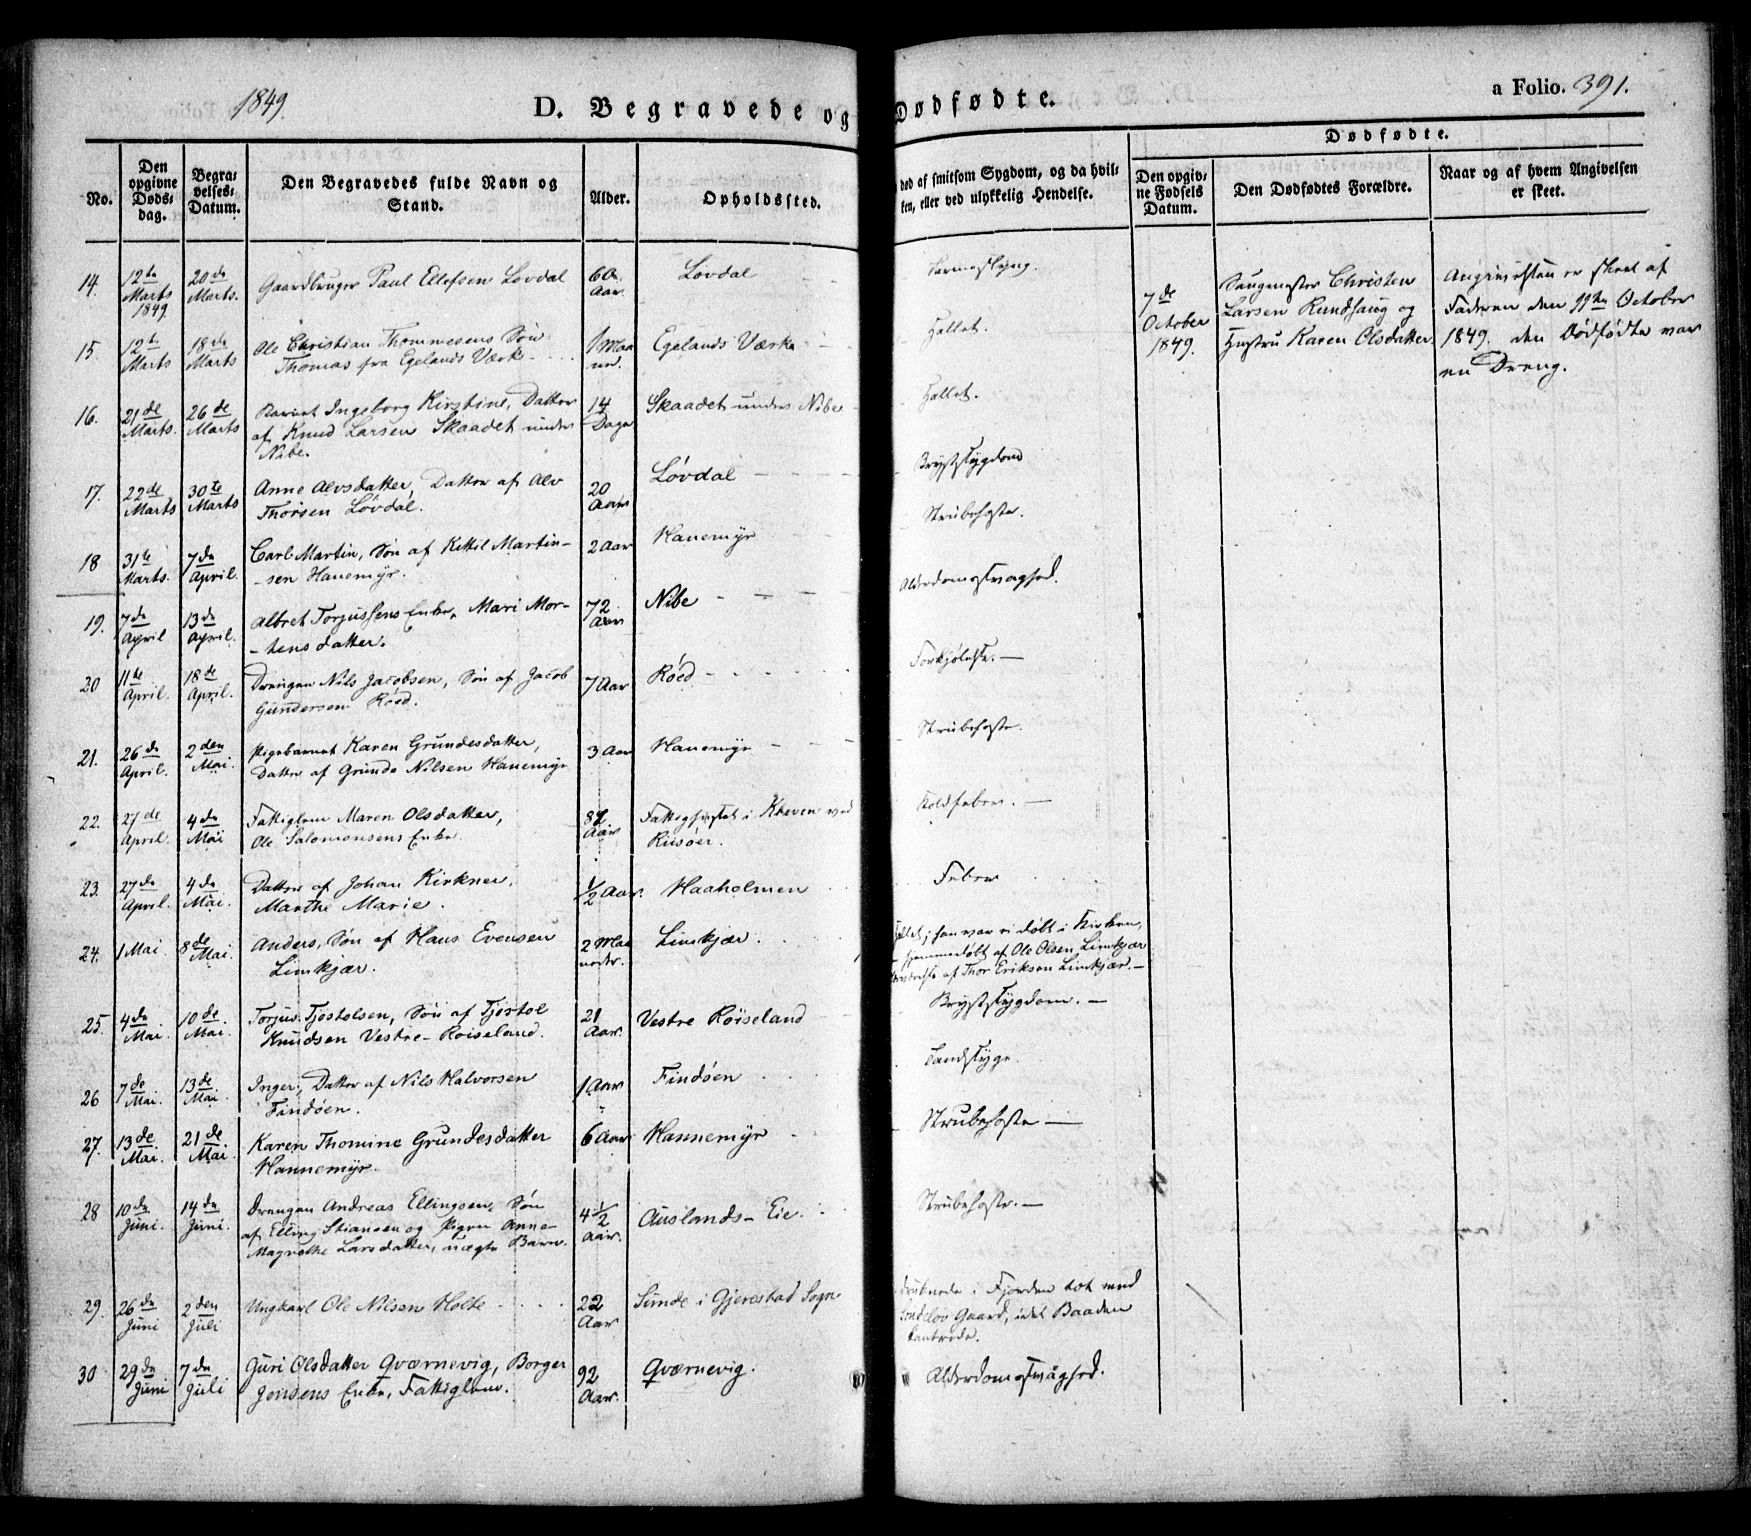 1849.
D. Begravede og Dødfødte.
a Folio. 391.
No.
Den opgivne Døds-dag.
Begravelses-Datum.
Den Begravedes fulde Navn og Stand.
Alder.
Opholdssted.
død af smitsom Sygdom, og da hvilken, eller ved ulykkelig Hendelse.
Dødfødte.
Den opgivne Fødsels Datum.
Den Dødfødtes Forældre.
Naar og af hvem Angivelsen er skeet.
14. 12te Marts 1849. 20de Marts. Gaardbruger Paul Ellefsen Lovdal 60 Aar Lovdal
15. 12te Marts 18de Marts Ole Christian Thommesens Søn
Thomas fra Egelands Værk 1 Maaned. Egelands Værk Fallet.
16. 21de Marts. 26de Marts Barnet Ingeborg Kirstine, Datter
af Knud Larsen Skaadet under
Nibe. 14 Dage Skaadet under Nibe Fallet.
17. 22de Marts 30te Marts Anne Alvsdatter, Datter af Alv
Thorsen Lövdal. 20 Aar Lövdal Brystsygdom
18 31te Marts. 7de April. Carl Martin, Søn af Kittil Martin-
-sen Hanemyr. 2 Aar Hanemyr Strubehoste.
19. 7de April 13de April. Albret Torjussens Enke, Mari Mor-
-tensdatter. 72 Aar Nibe Alderdomssvaghed.
20 11te April. 18de April. Drengen Nils Jacobsen, Søn af Jacob
Gundersen Röed. 7 Aar Röed Forkjølelse.
21. 26de April. 2den Mai. Pigebarnet Karen Grundesdatter,
Datter af Grunde Nilsen Hanemyr 3 Aar Hanemyr Strubehoste.
22. 27de April. 4de Mai Fattiglem Maren Olsdatter,
Ole Salomonsens Enke. 82 Aar i Kreven ved
Riisöer. Koldfeber.
23. 27de April. 4de Mai. Datter af Johan Kirkner,
Marthe Marie. 1/2 Aar. Haaholmen Feber
24. 1 Mai 8de Mai. Anders, Søn af Hans Evensen
Limkjær. 2 Maaneder. Limkjær. Fallet; han var ei døbt i Kirken,
hjemmedøbt af Ole Olsen Limkjær
af Thor Eriksen Limkjær.
25. 4de Mai. 10de Mai. Torjus Tjöstolsen, Søn af Tjöstol
Knudsen Vestre-Röiseland. 21 Aar. Vestre Röiseland Brystsygdom.
26 7de Mai. 13de Mai. Inger, Datter af Nils Halvorsen
Findöen. 1 Aar Findöen Landssyge.
27. 13de Mai. 21de Mai. Karen Thomine Grundesdatter
Hannemyr. 6 Aar Hannemyr Strubehoste
28 10de Juni. 14de Juni. Drengen Andreas Ellingsen, Søn
af Elling Stiansen og Pigen Anne
Larsdatter, uægte Barn. 4 1/2 Aar. Auslands-Eie. Strubehoste.
29. 26de Juni 2den Juli Ungkarl Ole Nilsen Holte 22 Aar Sunde i Gjerestad Sogn druknede i Fjorden tæt med
Gaard, idet Baaden
kantrede.
30 29de Juni 7de Juli Guri Olsdatter Qværnevig, Borger
Jensens Enke, Fattiglem. 92 Aar. Qværnevig. Alderdomssvaghed.
7de October 1849.
Christen
Larsen Rundhaug og
Hustru Karen Olsdatter.
Angivelsen er skeet af
Faderen den 11te October
1849. den Dödfödte var
en Dreng.